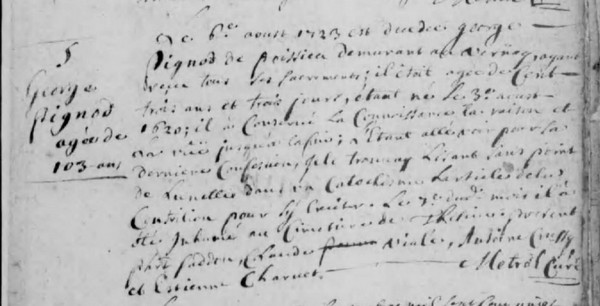 5
George
Pignod
agée de
103 ans
Le 6e aoust 1723 est decedee George
Pignod de poissieu demurant au ayant
reçeu tous les sacrements; il était agée de Cent
trois ans et trois jours, étant né le 3e aoust
1620; il à Conservé la Connoissance la raison et
la jusqu'a la fin; l'étant alle voir pour la
derniere Confession, je le trouvay Lisant sans point
de Lunettes dans un Catechisme L'article de la
Contrition pour s'y exciter. Le 7e dudt mois il à
été Inhumé au Cimetiere de present
Claude Viale, Antoine
et Estienne Charvet.
Metral Curé